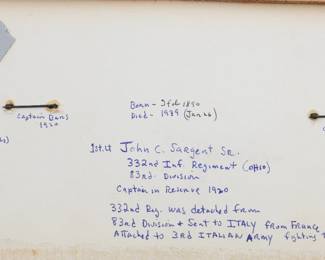 Captain Bars
1920
Born - 1890
Died - 1989 (Jan 26)
1st Lt John C. Sargent Sr.
332nd Inf. Regiment (OHIO)
83rd Division
Captain in Reserve 1920
332nd Reg. was detached from
83rd Division & Sent to ITALY from France
Attached to 3RD ITALIAN ARMY fighting